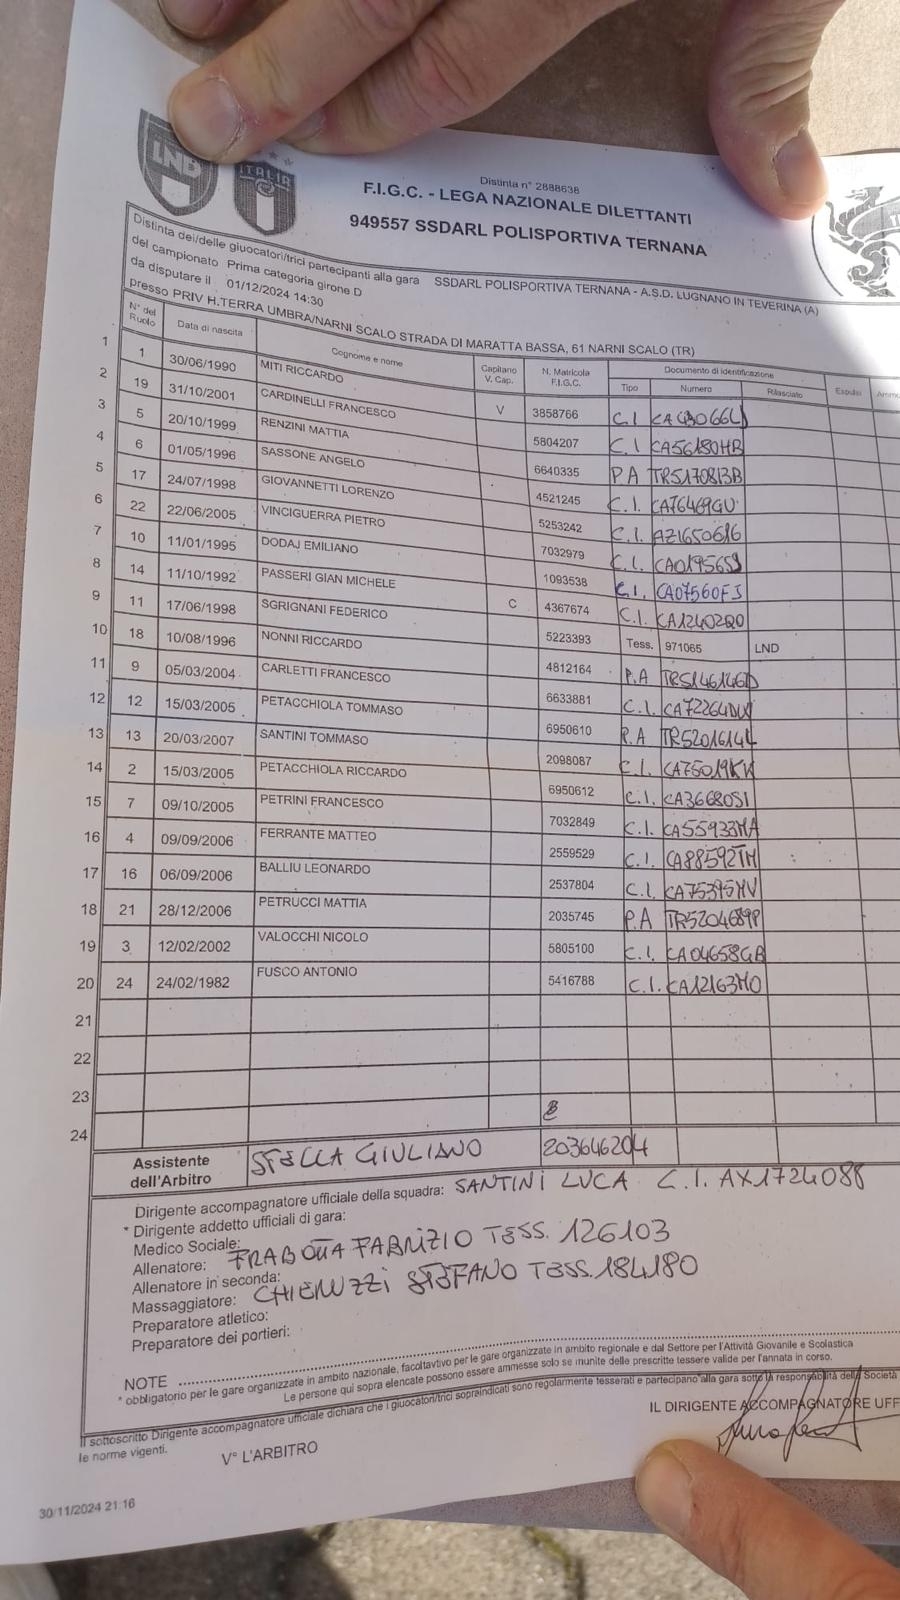 LND
ITALIA
Distinta n° 2888638
F.I.G.C. - LEGA NAZIONALE DILETTANTI
949557 SSDARL POLISPORTIVA TERNANA
Distinta dei/delle giuocatori/trici partecipanti alla gara SSDARL POLISPORTIVA TERNANA - A.S.D. LUGNANO IN TEVERINA (A)
del campionato Prima categoria girone D
da disputare il 01/12/2024 14:30
presso PRIV H.TERRA UMBRA/NARNI SCALO STRADA DI MARATTA BASSA, 61 NARNI SCALO (TR)
N° del Ruolo Data di nascita Cognome e nome Capitano V. Cap. N. Matricola F.I.G.C. Documento di identificazione Espulsi
Tipo Numero Rilasciato
1 1 30/06/1990 MITI RICCARDO V 3858766 C.I CA43066LJ
2 19 31/10/2001 CARDINELLI FRANCESCO 5804207 C.I CA56180HB
3 5 20/10/1999 RENZINI MATTIA 6640335 P.A TR5170813B
4 6 01/05/1996 SASSONE ANGELO 4521245 C.I. CA76469GU
5 17 24/07/1998 GIOVANNETTI LORENZO 5253242 C.I. AZ1650616
6 22 22/06/2005 VINCIGUERRA PIETRO 7032979 C.I. CA01956SJ
7 10 11/01/1995 DODAJ EMILIANO 1093538 C.I. CA07560FJ
8 14 11/10/1992 PASSERI GIAN MICHELE C 4367674 C.I. CA12402QO
9 11 17/06/1998 SGRIGNANI FEDERICO 5223393 Tess. 971065 LND
10 18 10/08/1996 NONNI RICCARDO 4812164 P.A TR5146146D
11 9 05/03/2004 CARLETTI FRANCESCO 6633881 C.I. CA72264DU
12 12 15/03/2005 PETACCHIOLA TOMMASO 6950610 P.A TR5201614L
13 13 20/03/2007 SANTINI TOMMASO 2098087 C.I. CA75019KW
14 2 15/03/2005 PETACCHIOLA RICCARDO 6950612 C.I. CA36680SI
15 7 09/10/2005 PETRINI FRANCESCO 7032849 C.I. CA55933MA
16 4 09/09/2006 FERRANTE MATTEO 2559529 C.I. CA88592TM
17 16 06/09/2006 BALLIU LEONARDO 2537804 C.I. CA75395MV
18 21 28/12/2006 PETRUCCI MATTIA 2035745 P.A TR5204689P
19 3 12/02/2002 VALOCCHI NICOLO 5805100 C.I. CA04658GB
20 24 24/02/1982 FUSCO ANTONIO 5416788 C.I. CA12163MO
21
22
23
24
Assistente dell'Arbitro STELLA GIULIANO 203646204
Dirigente accompagnatore ufficiale della squadra: SANTINI LUCA C.I. AX1724088
* Dirigente addetto ufficiali di gara:
Medico Sociale:
Allenatore: FRABOTTA FABRIZIO TESS. 126103
Allenatore in seconda:
Massaggiatore: CHIERUZZI STEFANO TESS. 184180
Preparatore atletico:
Preparatore dei portieri:
NOTE
* obbligatorio per le gare organizzate in ambito nazionale, facoltavtivo per le gare organizzate in ambito regionale e dal Settore per l'Attività Giovanile e Scolastica
Le persone qui sopra elencate possono essere ammesse solo se munite delle prescritte tessere valide per l'annata in corso.
Il sottoscritto Dirigente accompagnatore ufficiale dichiara che i giuocatori/trici sopraindicati sono regolarmente tesserati e partecipano alla gara sotto la responsabilità della Società
le norme vigenti.
IL DIRIGENTE ACCOMPAGNATORE UFF
V° L'ARBITRO
30/11/2024 21:16